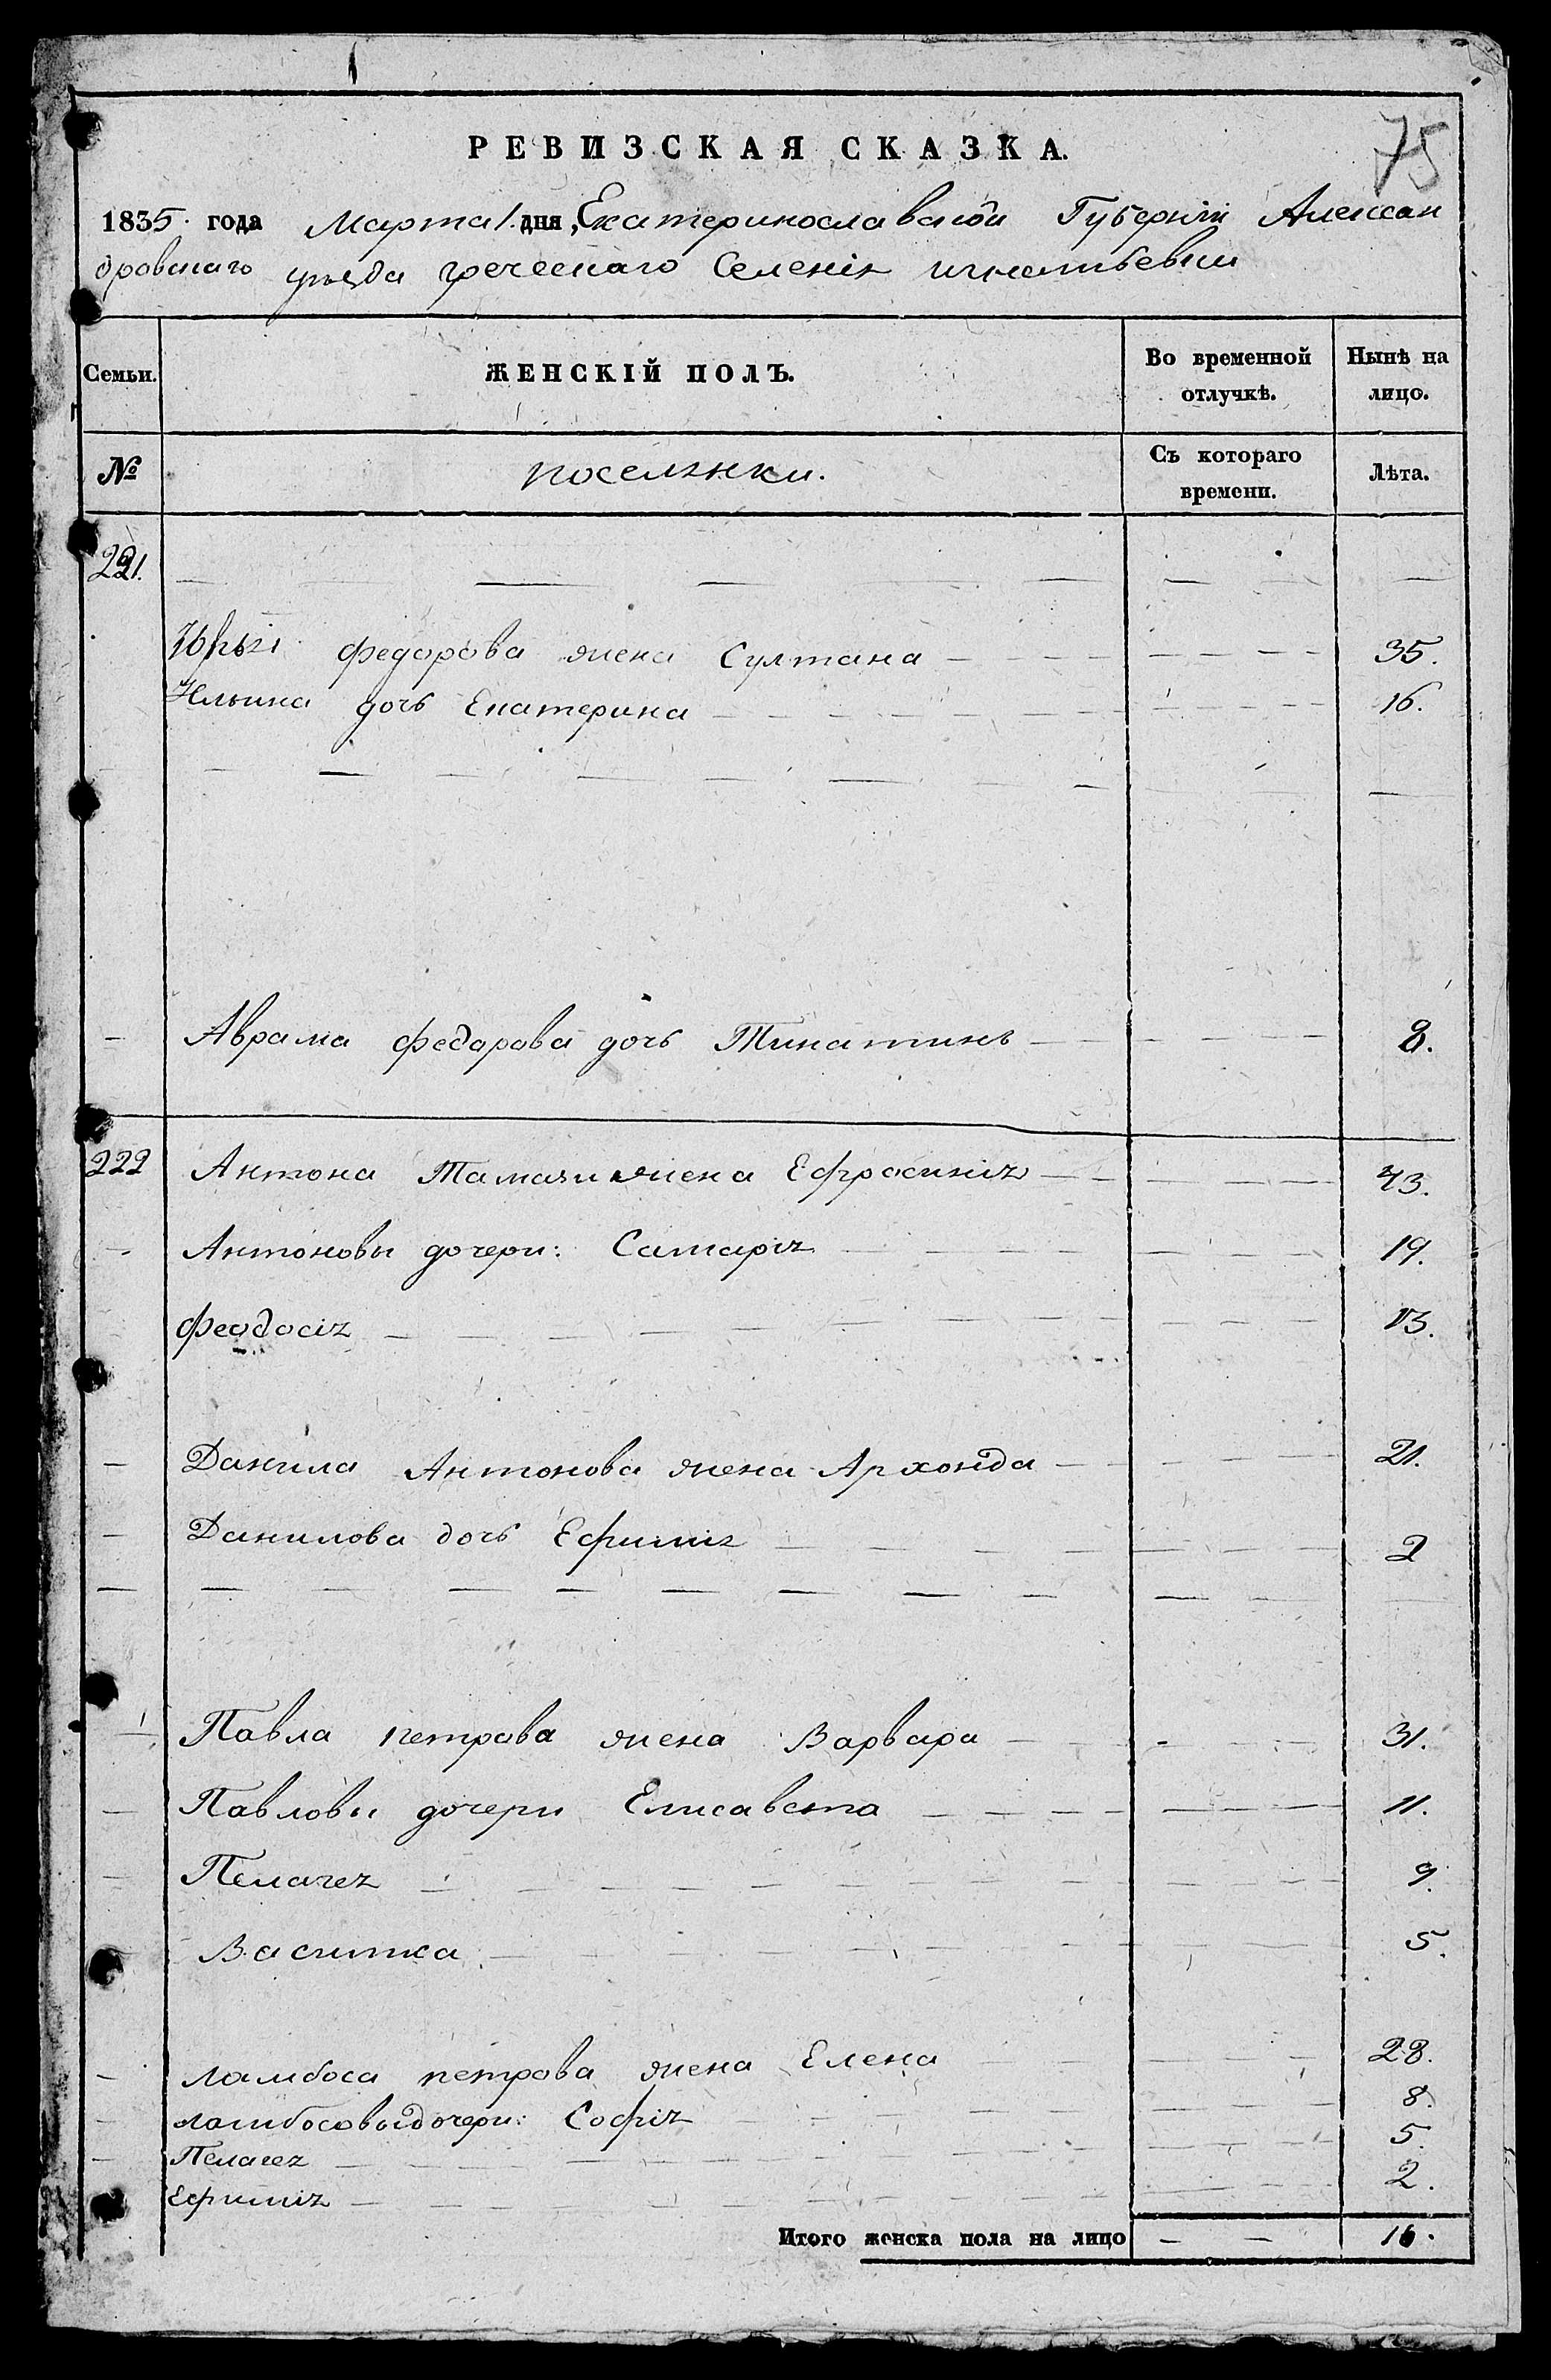 75
РЕВИЗСКАЯ СКАЗКА.
1835. года Марта 1. дня, Екатеринославской Губерніи Алексан
дровскаго уѣзда греческаго Селенія игнатьевки
Семьи. ЖЕНСКІЙ ПОЛЪ. Во временной отлучкѣ. Нынѣ на лицо.
№ поселянки. Съ котораго времени. Лѣта.
221.
федорова жена Султана 35.
Ильина дочь Екатерина 16.
Аврама федорова дочь Тинатинъ 8.
222 Антона Тамази жена Ефросинія 43.
Антоновы дочери: Сатарія 19.
Феодосія 13.
Данила Антонова жена Архонда 21.
Данилова дочь Ефимія 2
Павла петрова жена Варвара 31.
Павловы дочери Елисавета 11.
Пелагея 9.
Василика 5.
ламбоса петрова жена Елена 28.
ламбосовы дочери: Софія 8.
Пелагея 5.
Ефимія 2.
Итого женска пола на лицо 16.